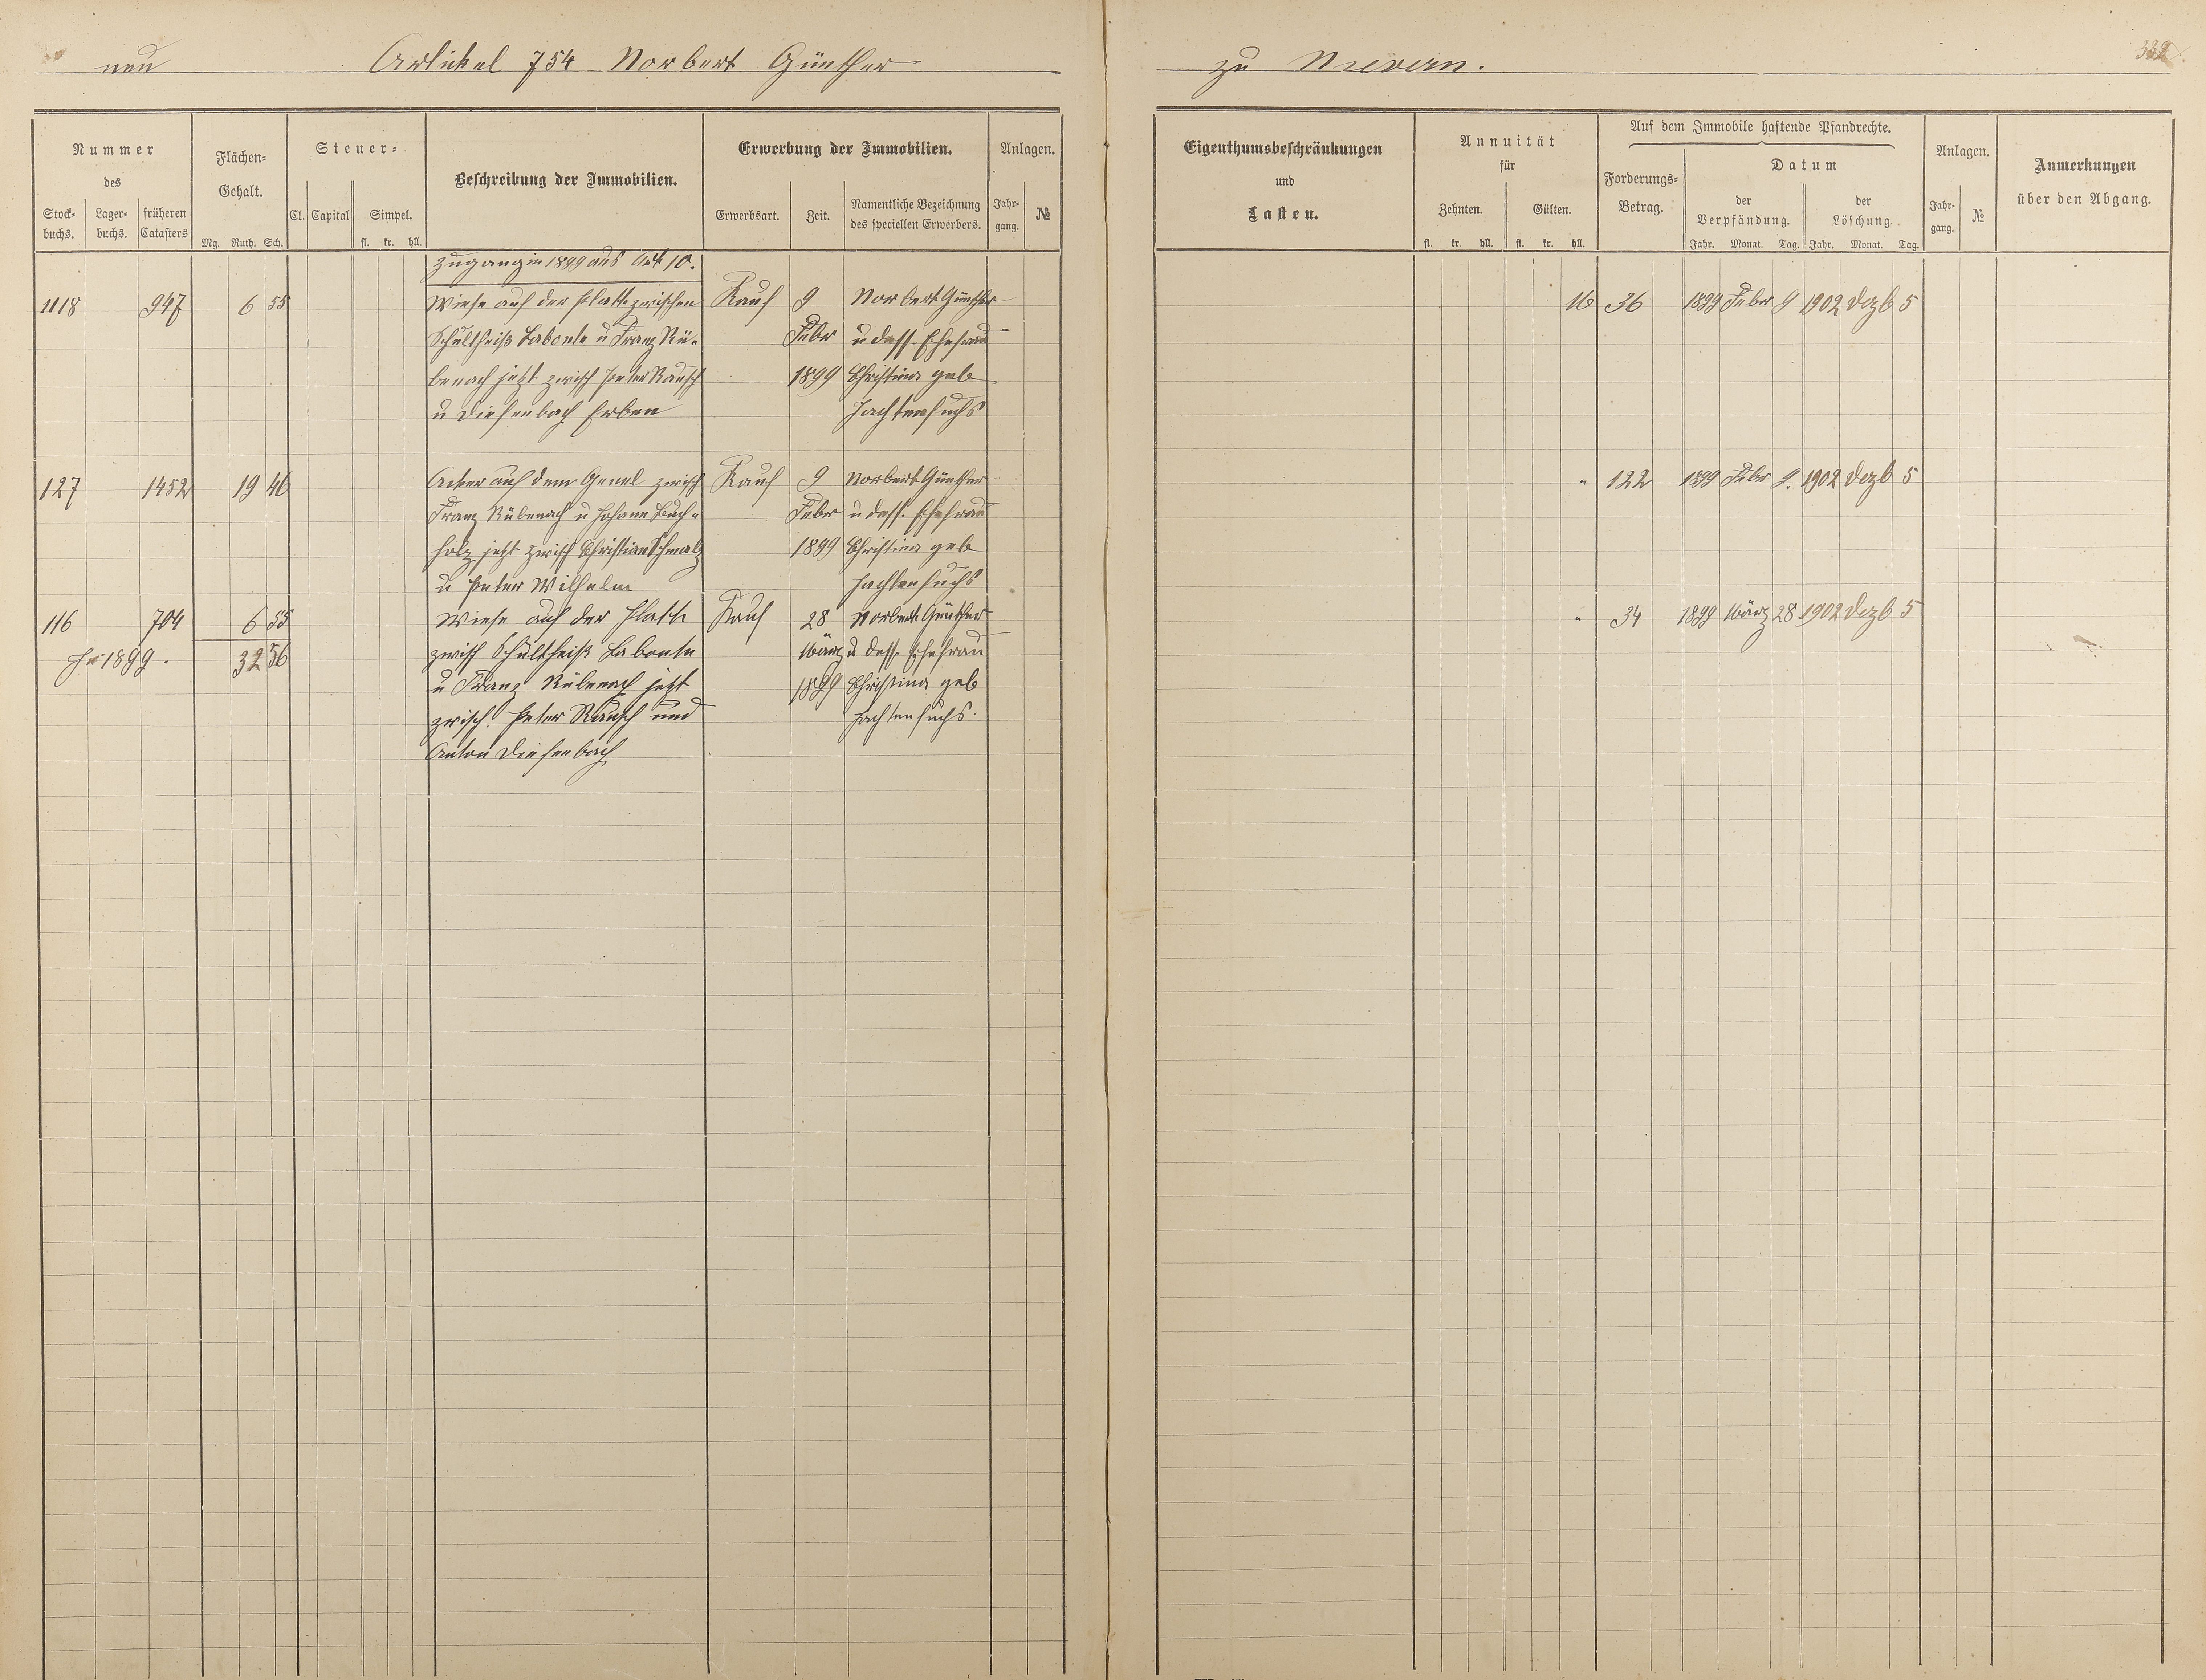 neu Artickel 754 Norbert Günther zu Nievern.
332
Nummer
des
Stock-
buchs.
Lager-
buchs.
früheren
Catasters
Flächen-
Gehalt.
Mg. Ruth. Sch.
Steuer-
Cl. Capital Simpel.
fl. kr. hll.
Beschreibung der Immobilien.
Erwerbung der Immobilien.
Erwerbsart. Zeit.
Namentliche Bezeichnung
des speciellen Erwerbers.
Anlagen.
Jahr-
gang.
№
Eigenthumsbeschränkungen
und
Lasten.
Annuität
für
Zehnten. Gülten.
fl. kr. hll. fl. kr. hll.
Auf dem Immobile haftende Pfandrechte.
Forderungs-
Betrag.
Datum
der
Verpfändung.
der
Löschung.
Jahr. Monat. Tag. Jahr. Monat. Tag.
Anlagen.
Jahr-
gang.
№
Anmerkungen
über den Abgang.
Zugang in 1899 aus Art 10.
1118 947 6 55 Wiese auf der Platte zwischen Kauf 9 Norbert Günther 16 36 1899 Febr 9 1902 Dezb 5
Schultheiß Labonte u Franz Rü- Febr u dess. Ehefrau
benach jetzt zwisch Peter Rausch 1899 Christina geb
u Diefenbach Erben Hachtenfuchs
127 1452 19 46 Acker auf dem Genel zwisch Kauf 9 Norbert Günther " 122 1899 Febr 9. 1902 Dezb 5
Franz Rübenach u Johann Buch- Febr u dess. Ehefrau
holz jetzt zwisch Christian Schmalz 1899 Christina geb
u Peter Wilhelm Hachtenfuchs
116 704 6 55 Wiese auf der Platte Kauf 28 Norbert Günther " 34 1899 März 28 1902 Dezb 5
Für 1899. 32 56 zwisch Schultheiß Labonte März u dess. Ehefrau
u Franz Rübenach jetzt 1899 Christina geb
zwisch Peter Rausch und Hachtenfuchs.
Anton Diefenbach